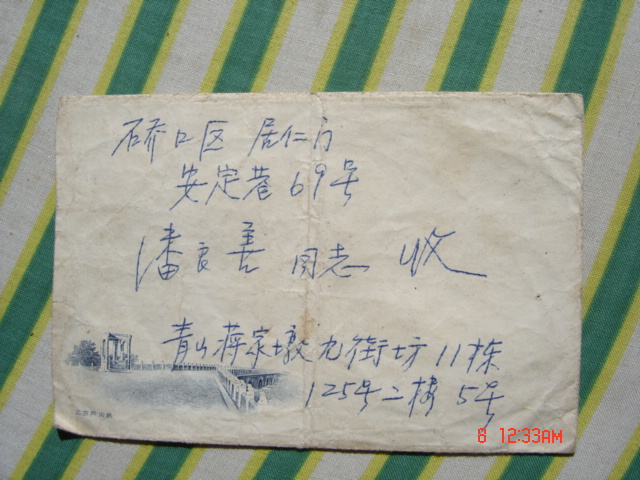 硚口区 居仁门
安定巷 69号
潘良善 同志 收
青山蒋家墩九街坊 11栋
125号二楼 5号
北京芦沟桥
8 12:33AM